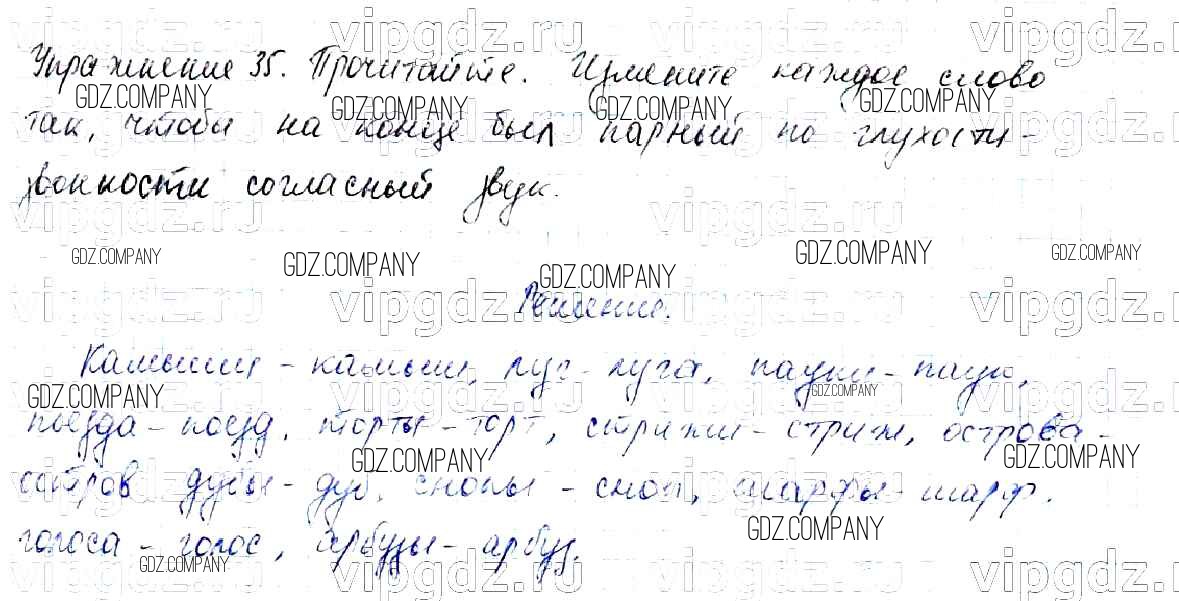 Упражнение 35. Прочитайте. Измените каждое слово
так, чтобы на конце был парный по глухости-
звонкости согласный звук.
Решение.
Камыши - камыш, луг - луга, пауки - паук,
поезда - поезд, торты - торт, стрижи - стриж, острова -
остров дубы - дуб, снопы - сноп, шарфы - шарф.
голоса - голос, арбузы - арбуз.
vipgdz.ru
GDZ.COMPANY